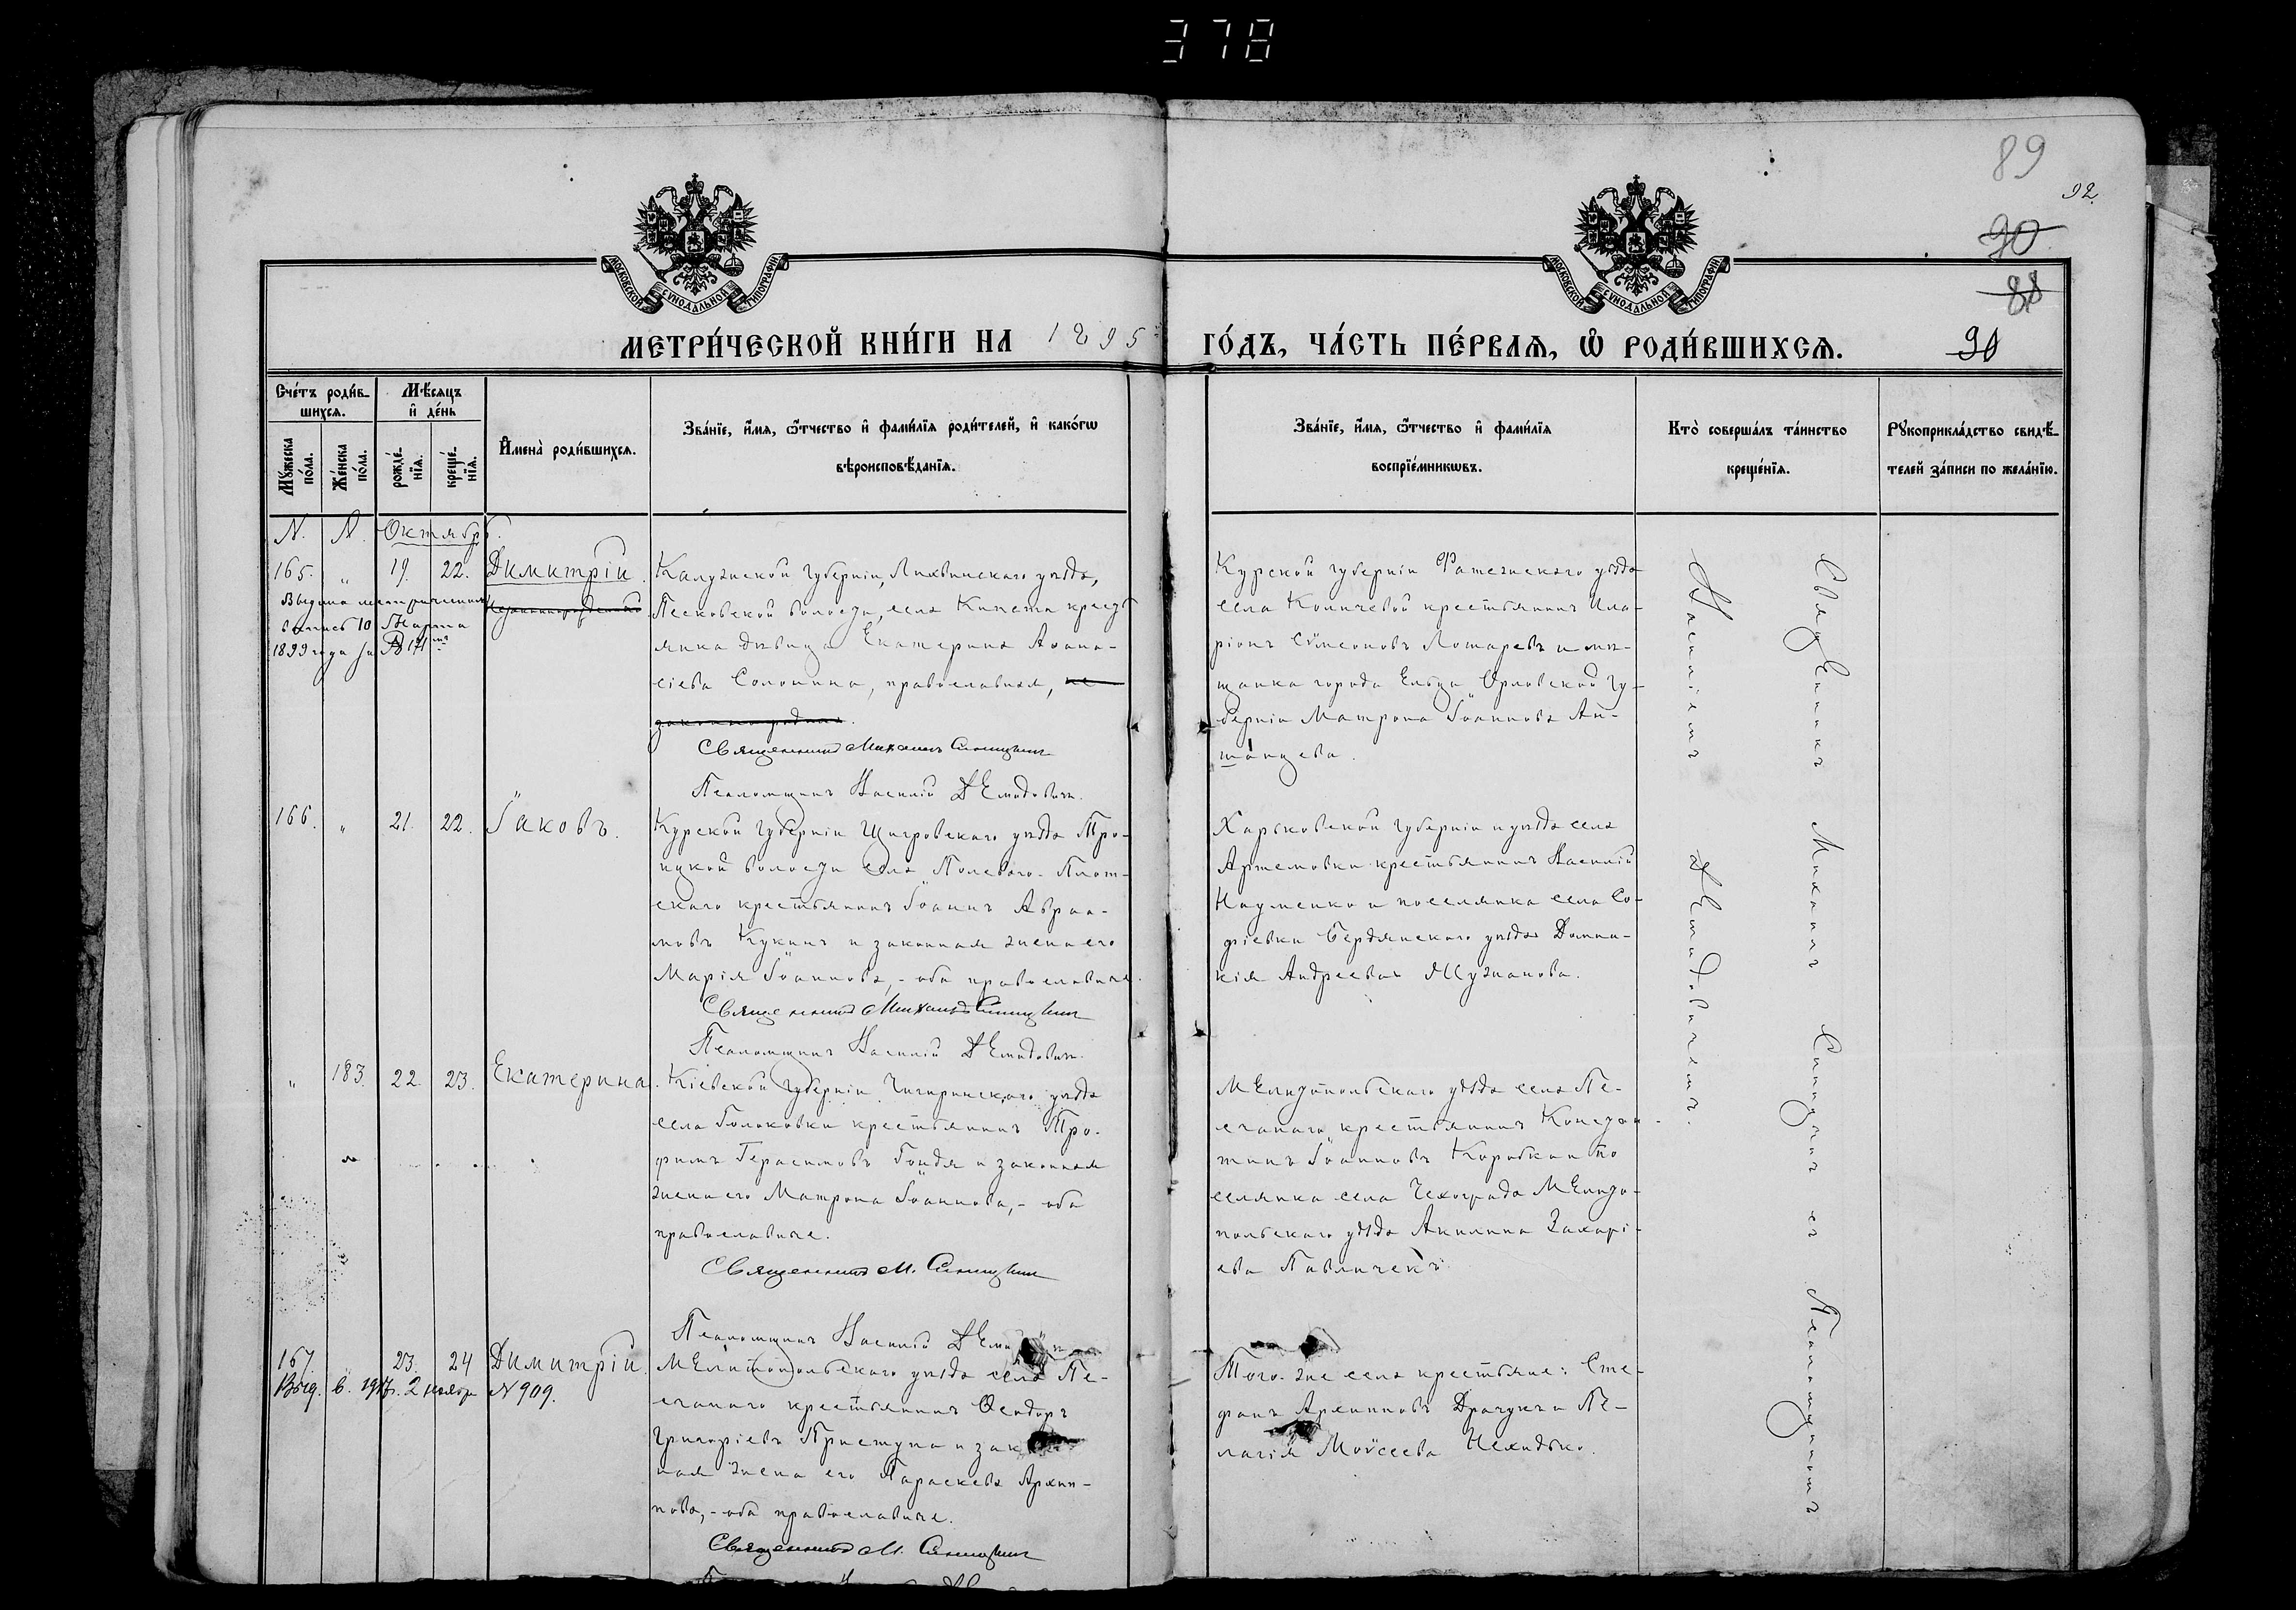 378
89
92.
90
88
90
МОСКОВСКОЙ СѴНОДАЛЬНОЙ ТИПОГРАФІИ
МОСКОВСКОЙ СѴНОДАЛЬНОЙ ТИПОГРАФІИ
МЕТРИ́ЧЕСКОЙ КНИ́ГИ НА 1895 ГО́ДЪ, ЧА́СТЬ ПЕ́РВАѦ, Ѡ РОДИ́ВШИХСѦ.
Сче́тъ роди́в-
шихсѧ.
Мѣ́сѧцъ
и де́нь
Мꙋжеска по́ла.
Же́нска по́ла.
рожде́-
нїѧ.
креще́-
нїѧ.
И҆мена̀ роди́вшихсѧ.
Зва́нїе, и҆́мѧ, ѻ҆́тчество и҆ фами́лїѧ роди́телей, и҆ како́гѡ
вѣроисповѣ́данїѧ.
Зва́нїе, и҆́мѧ, ѻ҆́тчество и҆ фами́лїѧ
воспрїе́мникѡвъ.
Кто̀ соверша́лъ та́инство
креще́нїѧ.
Рꙋкоприкла́дство свидѣ́-
телей за́писи по жела́нїю.
N. N. Октябрь.
165. „ 19. 22. Димитрій
Выдана метрическая
выпись 10 Марта
1899 года за № 171
Калужской губерніи, Лихвинскаго уѣзда,
Песковской волости, села Кипета кресть
янка дѣвица Екатерина Аѳана-
сіева Солонина, православная, не
законнорожден.
Священникъ Михаилъ Синицкій
Псаломщикъ Василій Демидовичъ.
Курской губерніи Фатежскаго уѣзда
села Коничевой крестьянинъ Ила-
ріонъ Сѵмеоновъ Лотаревъ и мѣ-
щанка города Ельца Орловской гу-
берніи Матрона Іоаннова Ан-
шанцева.
166. „ 21. 22. Іаковъ.
Курской губерніи Щигровскаго уѣзда Тро-
ицкой волости села Полеваго-Плот-
скаго крестьянинъ Іоаннъ Авраа-
мовъ Кукинъ и законная жена его
Марія Іоаннова, - оба православные.
Священникъ Михаилъ Синицкій
Псаломщикъ Василій Демидовичъ.
Харьковской губерніи и уѣзда села
Артемовки крестьянинъ Василій
Науменко и поселянка села Со-
фіевки Бердянскаго уѣзда Домни-
кія Андреева Мужанова.
„ 183. 22. 23. Екатерина.
Кіевской губерніи Чигиринскаго уѣзда
села Голоковки крестьянинъ Тро-
фимъ Герасимовъ Гойдя и законная
жена его Матрона Іоаннова, - оба
православные.
Священникъ М. Синицкій
Псаломщикъ Василій
Мелитопольскаго уѣзда села Пе-
счанаго крестьянинъ Констан-
тинъ Іоанновъ Коробка и по
селянка села Чехограда Мелито-
польскаго уѣзда Акилина Захарі-
ева Павличекъ.
167. 23. 24 Димитрій.
Выд. в. 1917г. 2 ноября N 909.
Мелитопольскаго уѣзда села Пе-
счанаго крестьянинъ Ѳеодоръ
Григоріевъ Приступа и закон
ная жена его Параскева Архип-
пова, - оба православные.
Священникъ М. Синицкій
Того-же села крестьяне: Сте-
фанъ Архипповъ Драчукъ и Пе-
лагія Моѵсеева Нехидько.
Священникъ Михаилъ Синицкій съ Псаломщикомъ
Василіемъ Демидовичемъ.